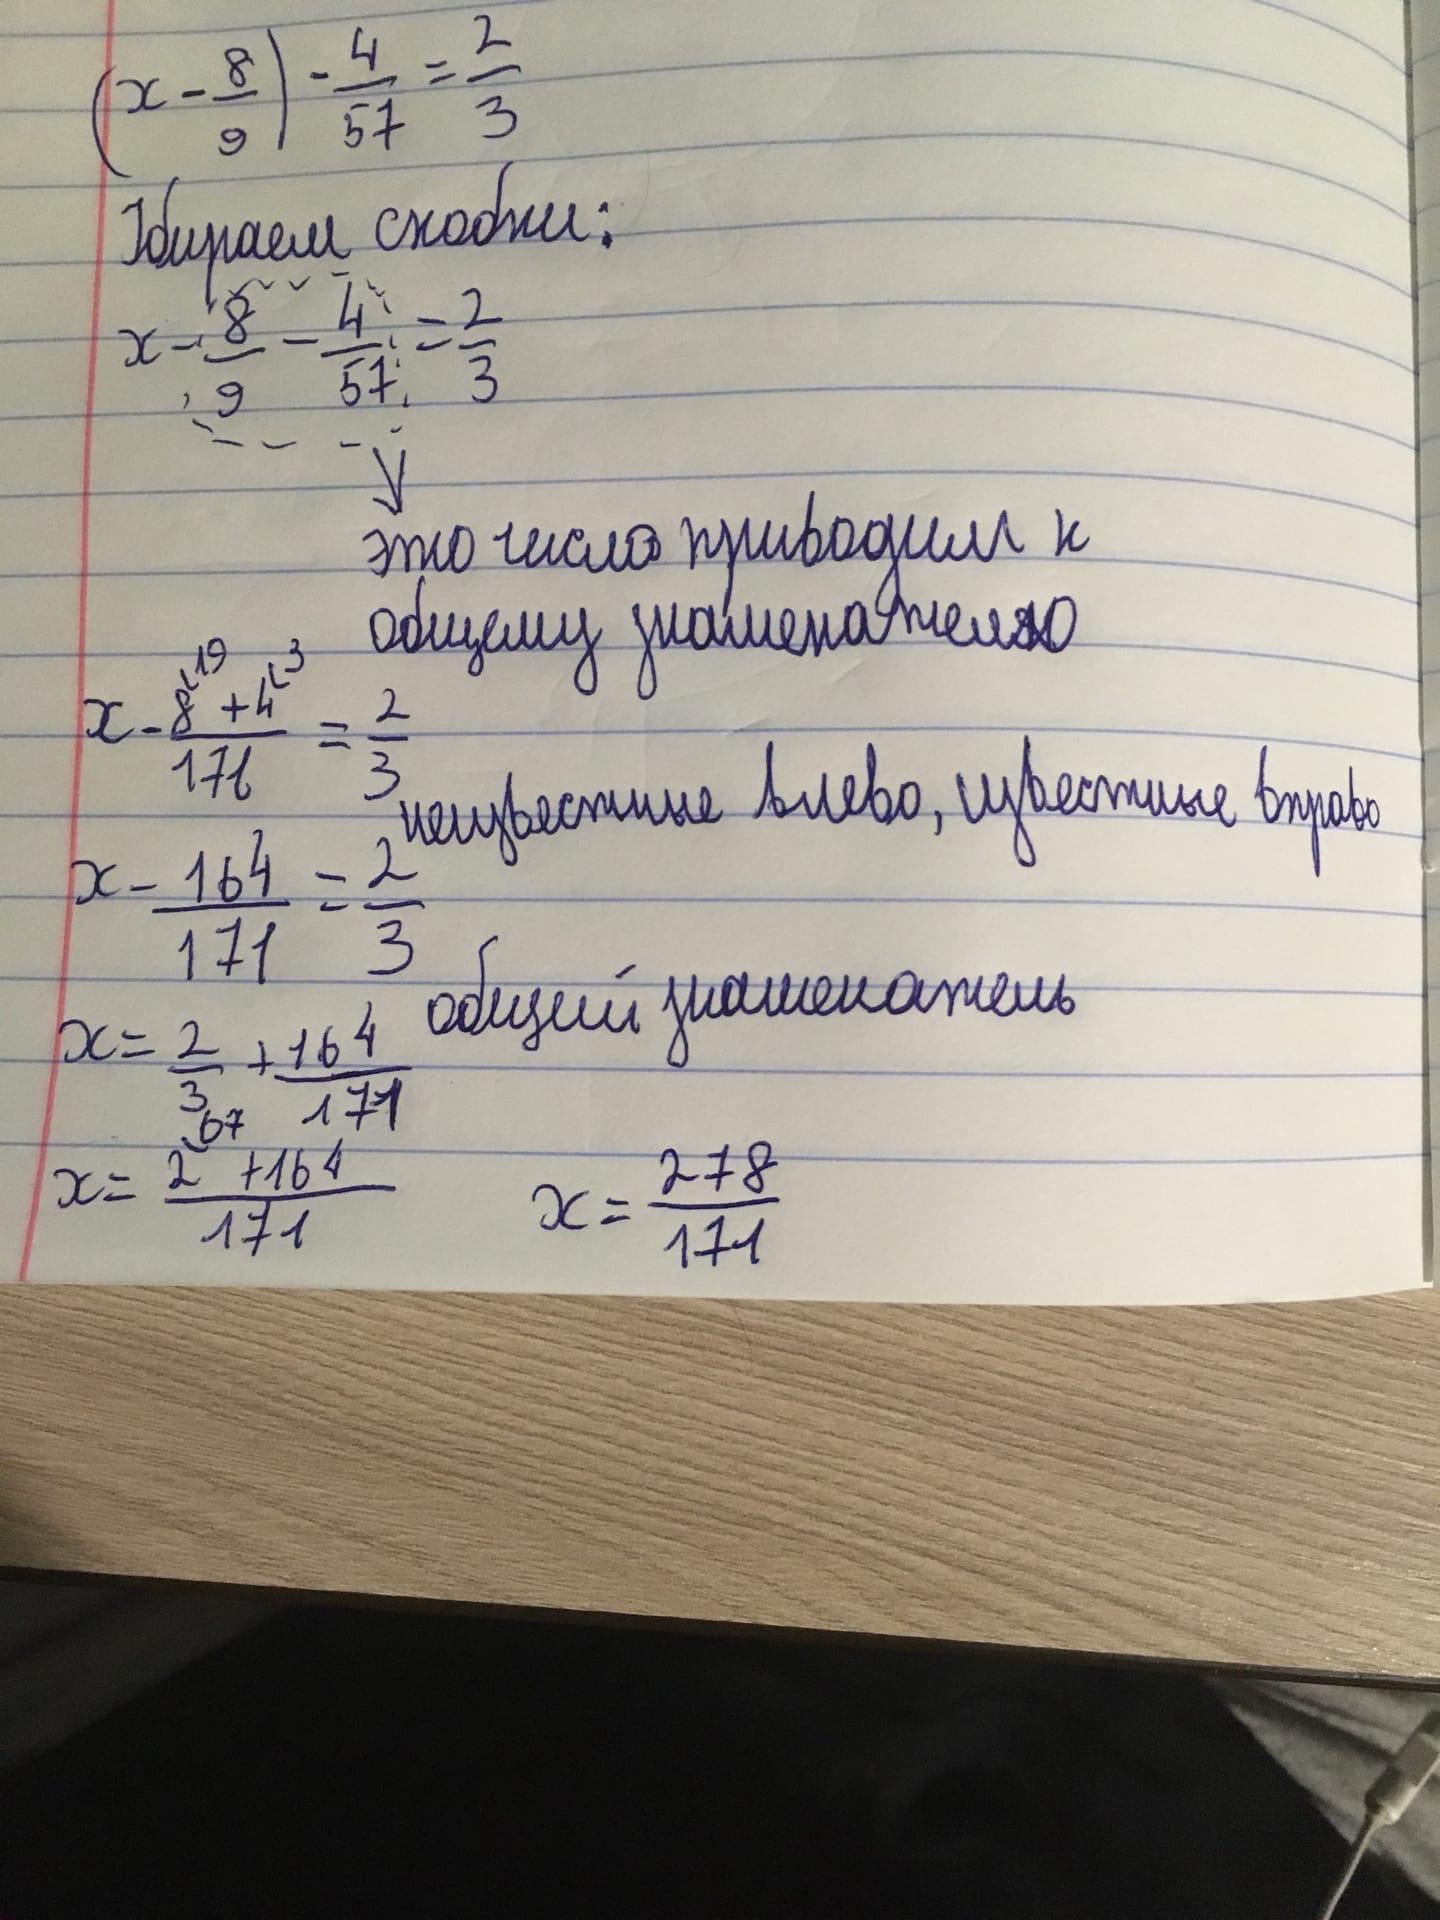 (x - 8/9) - 4/57 = 2/3
Убираем скобки:
x - 8/9 - 4/57 = 2/3
это число приводим к
общему знаменателю
x - (8^(19 + 4^(3)/171 = 2/3
неизвестные влево, известные вправо
x - 164/171 = 2/3
общий знаменатель
x = 2/3 + 164/171
x = (2^(67 + 164)/171 x = 278/171